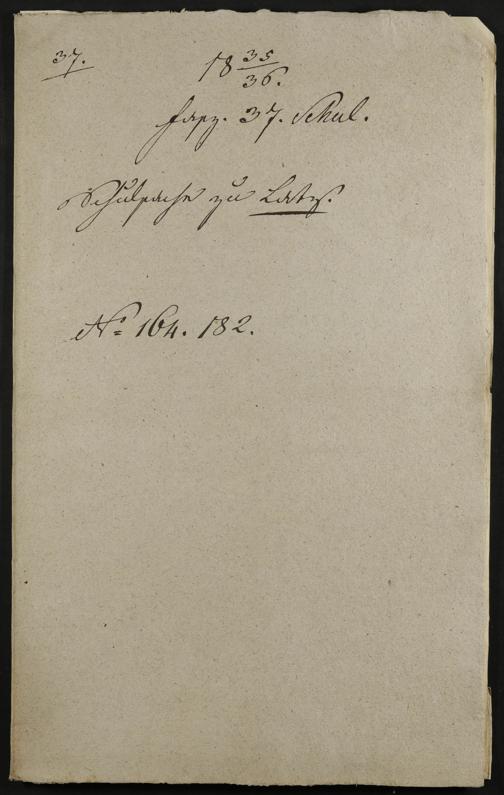 37.
18 35/36.
Fasz. 37. Schul.
Schulsache zu Latz.
No 164. 182.